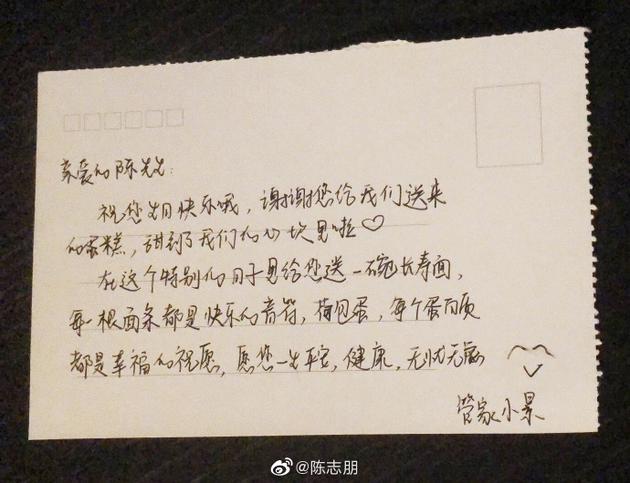 亲爱的陈先生:
祝您生日快乐哦，谢谢您给我们送来
的蛋糕，甜到了我们的心坎里啦♡
在这个特别的日子里给您送一碗长寿面，
每一根面条都是快乐的音符，荷包蛋，每个蛋白质
都是幸福的祝愿，愿您一生平安，健康，无忧无虑
管家小景
@陈志朋